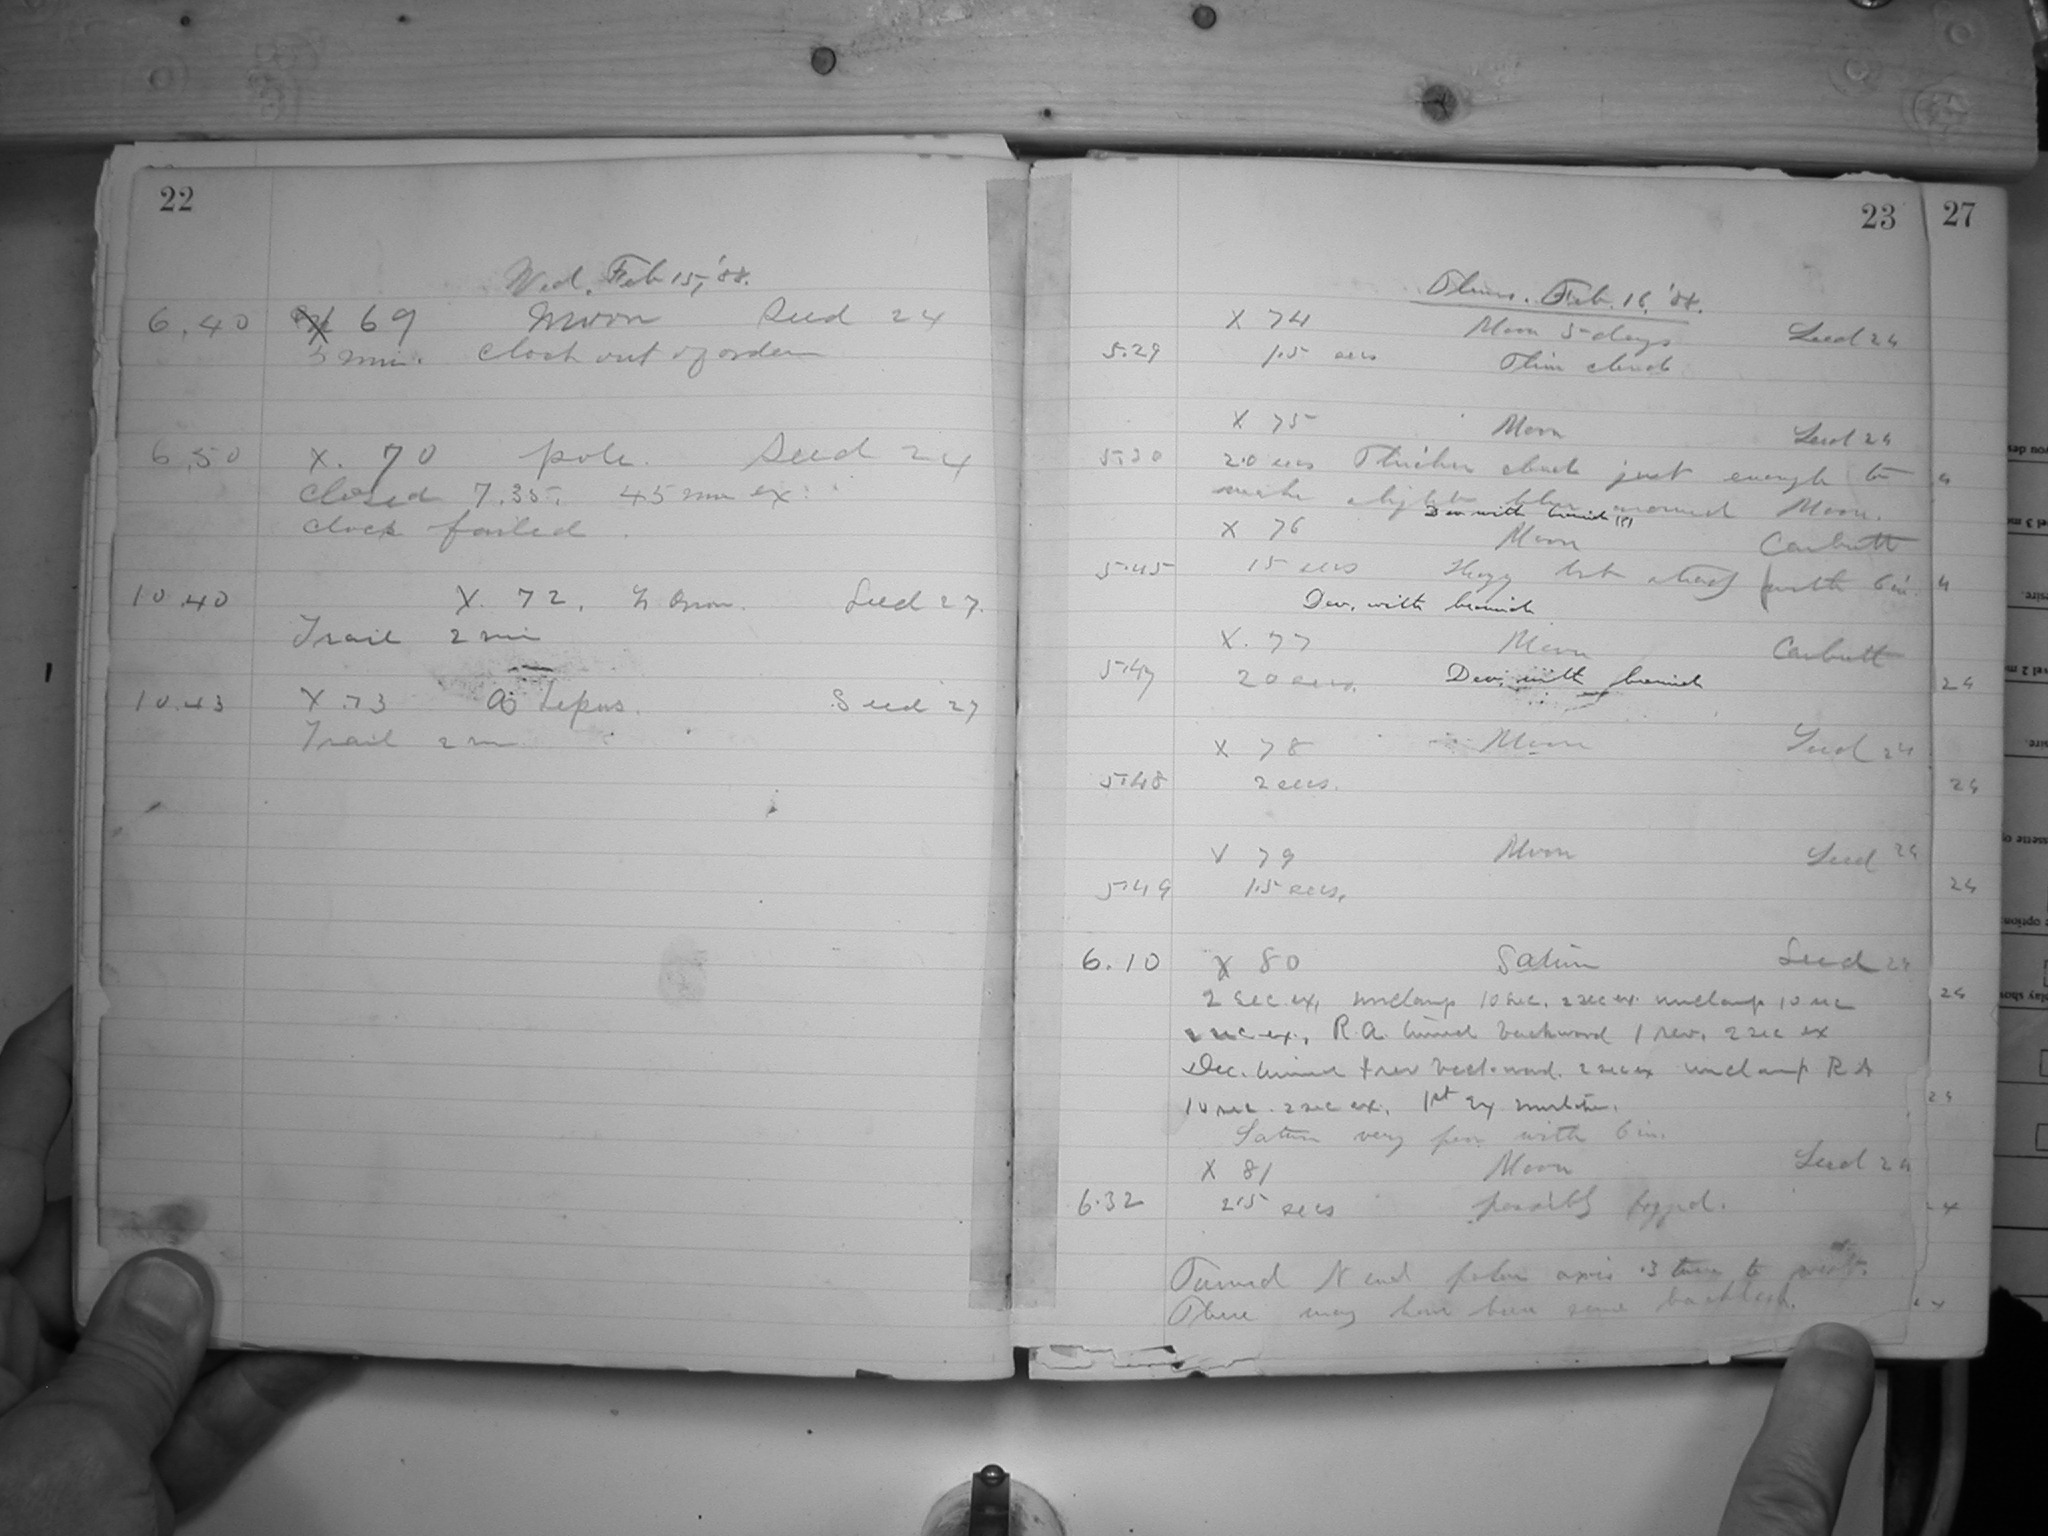 22
Wed. Feb 15, '88.
6.40 X 69 Moon Seed 24
5 min. Clock out of order
6.50 X. 70 pole. Seed 24
Closed 7.35. 45 min ex.
clock failed.
10.40 X. 72. Orion. Seed 27.
Trail 2 min
10.43 X 73 α Lepus. Seed 27
Trail 2 m
23
27
Thurs. Feb. 16, '88.
X 74 Moon 5 days Seed 24
5.29 1.5 secs Thin clouds
X 75 Moon Seed 24
5.30 2.0 secs Thicker clouds just enough to
make slight blur around Moon.
Dev. with bromide (?)
X 76 Moon Carbutt
5.45 15 secs Hazy but sharp with 6 in.
Dev. with bromide
X. 77 Moon Carbutt
5.47 20 secs. Dev. with bromide
24
X 78 Moon Seed 24
5.48 2 secs.
24
X 79 Moon Seed 24
5.49 1.5 secs.
24
6.10 X 80 Saturn Seed 24
2 sec ex, unclamp 10 sec. 2 sec ex. unclamp 10 sec
2 sec ex., R.A. turned backward 1 rev. 2 sec ex
Dec. turned 1 rev backward. 2 sec ex unclamp R A
10 sec. 2 sec ex. 1st ex
Saturn very poor with 6 in.
X 81 Moon Seed 24
6.32 2.5 secs possibly fogged.
Turned N end polar axis .3 turn to west.
There may have been some backlash.